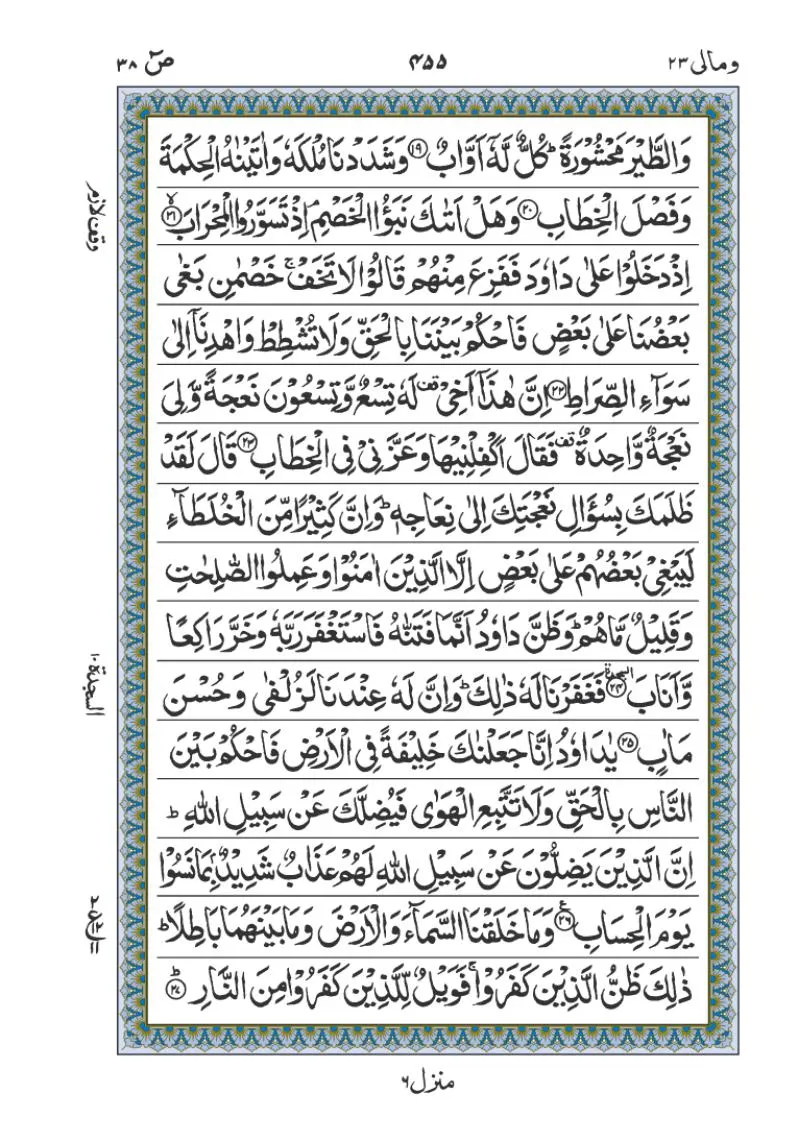 ومالی ۲۳
۴۵۵
صٓ ۳۸
وَالطَّیْرَ مَحْشُوْرَةًؕ کُلٌّ لَّهٗۤ اَوَّابٌ ﴿۱۹﴾ وَشَدَدْنَا مُلْکَهٗ وَاٰتَیْنٰهُ الْحِکْمَةَ
وَفَصْلَ الْخِطَابِ ﴿۲۰﴾ وَهَلْ اَتٰىكَ نَبَؤُا الْخَصْمِۘ اِذْ تَسَوَّرُوا الْمِحْرَابَ ﴿۲۱﴾ۙ
وقف لازم
اِذْ دَخَلُوْا عَلٰی دَاوٗدَ فَفَزِعَ مِنْهُمْ قَالُوْا لَا تَخَفْۚ خَصْمٰنِ بَغٰی
بَعْضُنَا عَلٰی بَعْضٍ فَاحْکُمْ بَیْنَنَا بِالْحَقِّ وَلَا تُشْطِطْ وَاهْدِنَاۤ اِلٰی
سَوَآءِ الصِّرَاطِ ﴿۲۲﴾ اِنَّ هٰذَاۤ اَخِیْ قف لَهٗ تِسْعٌ وَّتِسْعُوْنَ نَعْجَةً وَّلِیَ
نَعْجَةٌ وَّاحِدَةٌ قف فَقَالَ اَکْفِلْنِیْهَا وَعَزَّنِیْ فِی الْخِطَابِ ﴿۲۳﴾ قَالَ لَقَدْ
ظَلَمَكَ بِسُؤَالِ نَعْجَتِكَ اِلٰی نِعَاجِهٖؕ وَاِنَّ کَثِیْرًا مِّنَ الْخُلَطَآءِ
لَیَبْغِیْ بَعْضُهُمْ عَلٰی بَعْضٍ اِلَّا الَّذِیْنَ اٰمَنُوْا وَعَمِلُوا الصّٰلِحٰتِ
وَقَلِیْلٌ مَّا هُمْؕ وَظَنَّ دَاوٗدُ اَنَّمَا فَتَنّٰهُ فَاسْتَغْفَرَ رَبَّهٗ وَخَرَّ رَاکِعًا
وَّاَنَابَ ﴿۲۴﴾ السجدة فَغَفَرْنَا لَهٗ ذٰلِكَؕ وَاِنَّ لَهٗ عِنْدَنَا لَزُلْفٰی وَحُسْنَ
السجدة ۱۰
مَاٰبٍ ﴿۲۵﴾ یٰدَاوٗدُ اِنَّا جَعَلْنٰكَ خَلِیْفَةً فِی الْاَرْضِ فَاحْکُمْ بَیْنَ
النَّاسِ بِالْحَقِّ وَلَا تَتَّبِعِ الْهَوٰی فَیُضِلَّكَ عَنْ سَبِیْلِ اللّٰهِؕ
اِنَّ الَّذِیْنَ یَضِلُّوْنَ عَنْ سَبِیْلِ اللّٰهِ لَهُمْ عَذَابٌ شَدِیْدٌۢ بِمَا نَسُوْا
یَوْمَ الْحِسَابِ ﴿۲۶﴾ؑ وَمَا خَلَقْنَا السَّمَآءَ وَالْاَرْضَ وَمَا بَیْنَهُمَا بَاطِلًاؕ
ذٰلِكَ ظَنُّ الَّذِیْنَ کَفَرُوْاۚ فَوَیْلٌ لِّلَّذِیْنَ کَفَرُوْا مِنَ النَّارِ ﴿۲۷﴾ؕ
منزل ۶